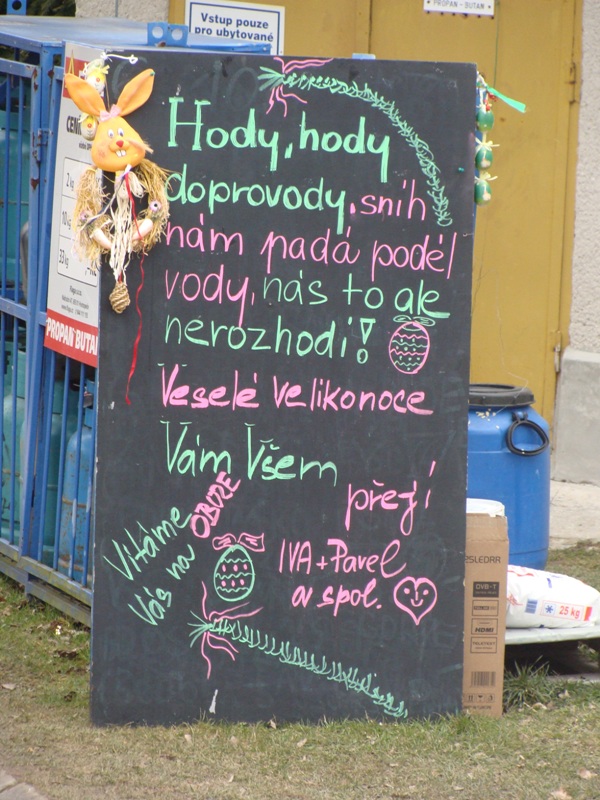 Vstup pouze
pro ubytované
PROPAN - BUTAN
Hody, hody
doprovody, sníh
nám padá podél
vody, nás to ale
nerozhodí!
Veselé Velikonoce
Vám Všem
přejí
IVA + Pavel
a spol.
Vítáme
Vás na
OBUZE
2 kg
10 kg
33 kg
PROPAN BUTAN
DVB-T
HDMI
25 kg